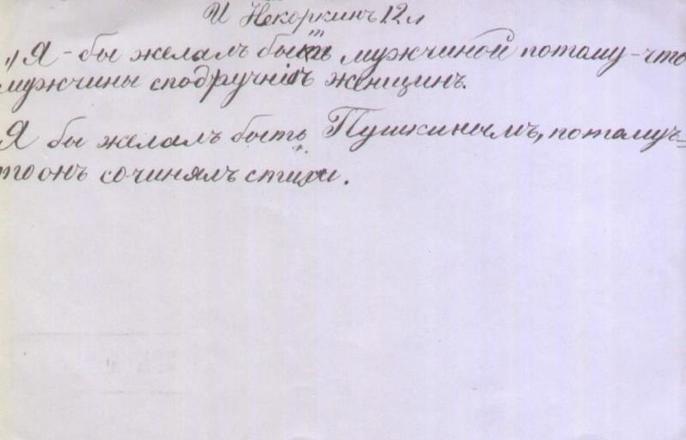 И Некоркинъ 12 л
„Я - бы желалъ быть мужчиной потому-что
мужчины сподручнѣѣ женщинъ.
Я бы желалъ быть Пушкинымъ, потомуч-
то онъ сочинялъ стихи.